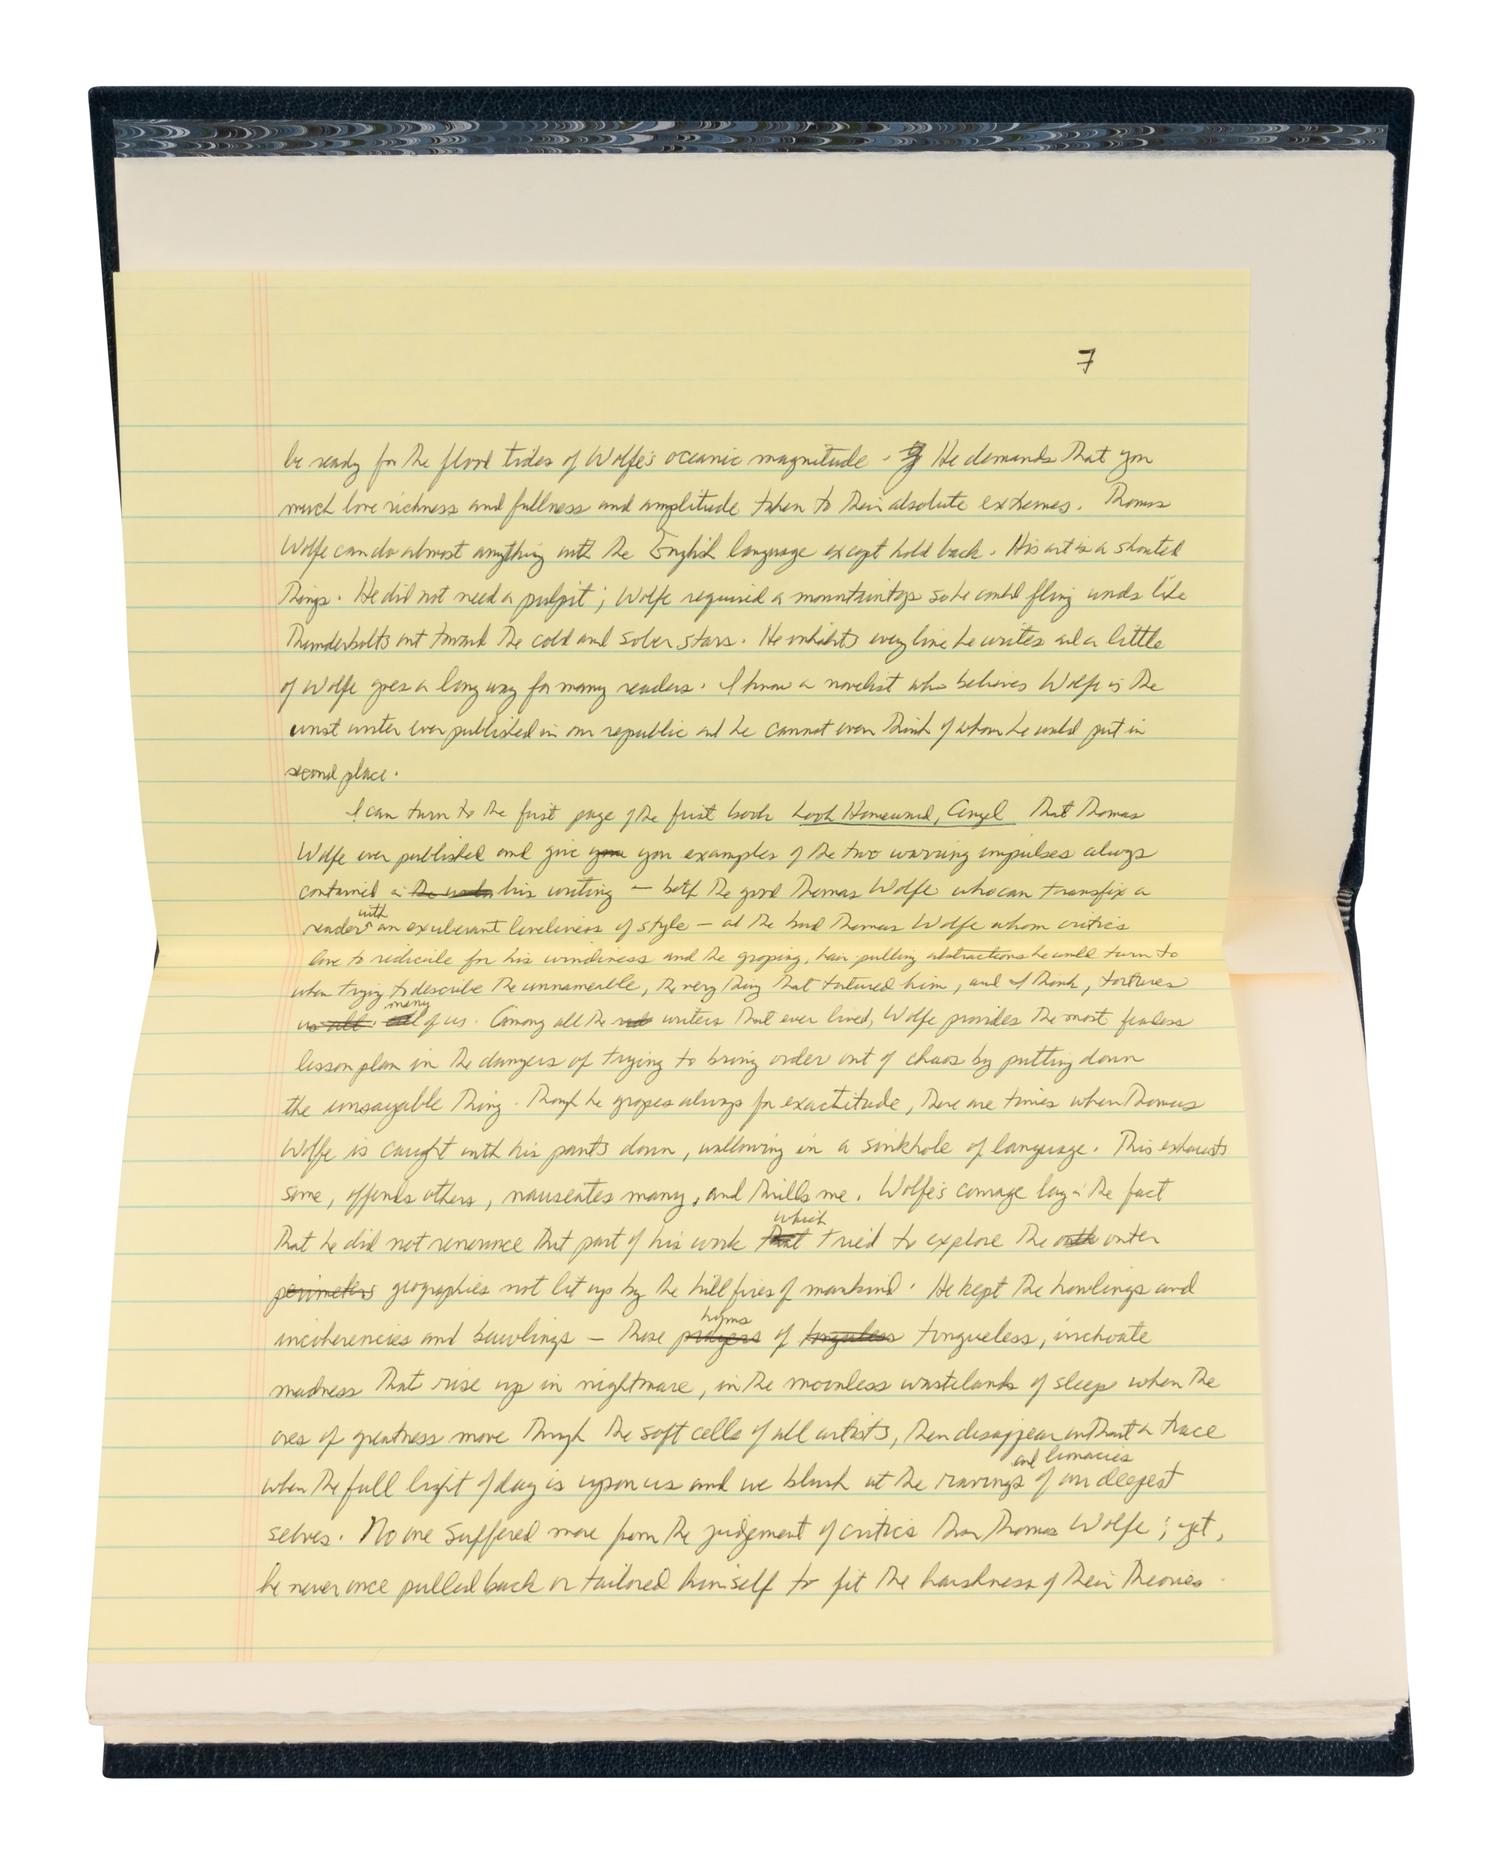 7
be ready for the flood tides of Wolfe's oceanic magnitude. He demands that you
much love richness and fullness and amplitude taken to their absolute extremes. Thomas
Wolfe can do almost anything with the English language except hold back. His art is a shouted
things. He did not need a pulpit; Wolfe required a mountaintop so he could fling words like
thunderbolts out toward the cold and sober stars. He inhabits every line he writes and a little
of Wolfe goes a long way for many readers. I know a novelist who believes Wolfe is the
worst writer ever published in our republic and he cannot even think of whom he would put in
second place.
I can turn to the first page of the first book Look Homeward, Angel that Thomas
Wolfe ever published and give you you examples of the two warring impulses always
contained in the his writing — both the good Thomas Wolfe who can transfix a
with
reader an exuberant loveliness of style — and the bad Thomas Wolfe whom critics
love to ridicule for his windiness and the groping, hair pulling abstractions he would turn to
when trying to describe the unnameable, the very thing that tortured him, and I think, tortures
many
us all. all of us. Among all the writers that ever lived, Wolfe provides the most fearless
lesson plan in the dangers of trying to bring order out of chaos by putting down
the unsayable thing. Though he gropes always for exactitude, there are times when Thomas
Wolfe is caught with his pants down, wallowing in a sinkhole of language. This exhausts
some, offends others, nauseates many, and thrills me. Wolfe's courage lay in the fact
which
that he did not renounce that part of his work that tried to explore the outer
perimeters geographies not lit up by the hill fires of mankind. He kept the howlings and
hymns
incoherencies and bawlings — those prayers of tongueless tongueless, inchoate
madness that rise up in nightmare, in the moonless wastelands of sleep when the
ores of greatness move through the soft cells of all artists, then disappear without a trace
and lunacies
when the full light of day is upon us and we blush at the ravings of our deepest
selves. No one suffered more from the judgement of critics than Thomas Wolfe; yet,
he never once pulled back or tailored himself to fit the harshness of their theories.